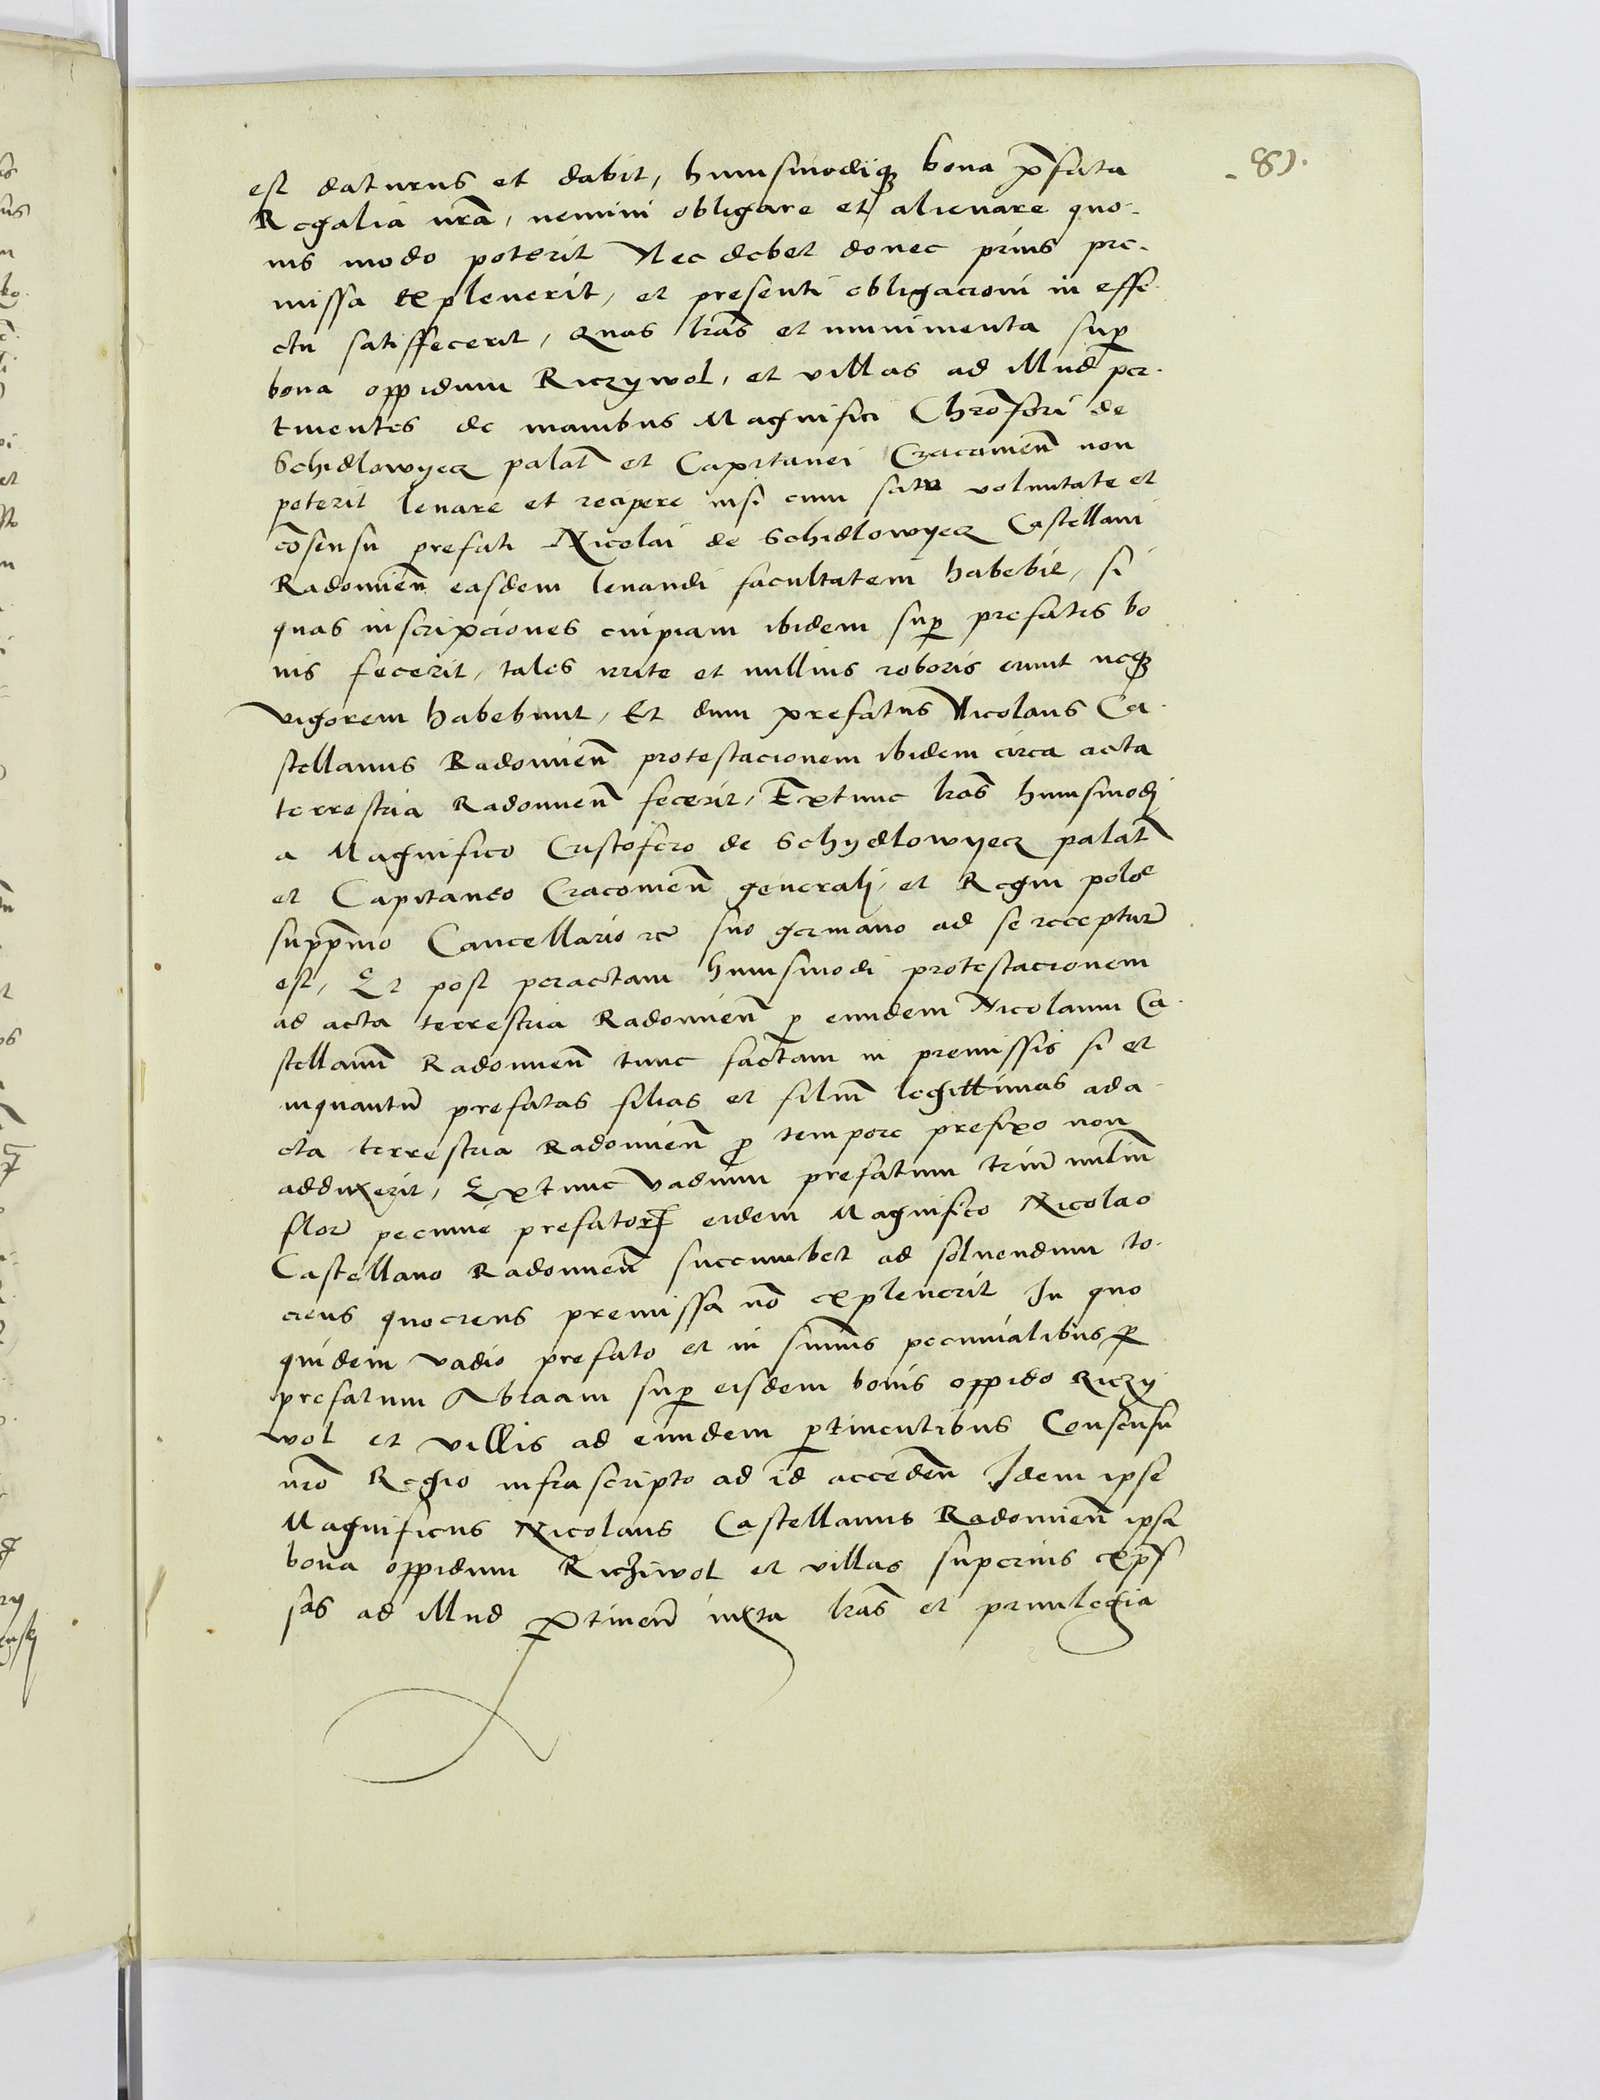 est daturus et dabit, huiusmodiq bona p̄fata
Regalia nr̄a, nemini obligare et alienare quo-
uis modo poterit Nec debet donec prius pre-
missa expleuerit, et presenti obligacioni in effe-
ctu satisfecerit, Quas lr̄as et munimenta sup
bona oppidum Riczywol, et villas ad illud per-
tinentes de manibus Magnifici Chrōferi de
Schidlowyecz palat̄ et Capitanei Cracouien̄ non
poterit leuare et recipere nisi cum voluntate et
cōsensu prefati Nicolai de Schidlowyecz Castellani
Radomien̄ easdem leuandi facultatem habebit, si
quas inscripciones cuipiam ibidem sup prefatis bo
nis fecerit, tales irrite et nullius roboris erunt neq
vigorem habebunt, Et dum prefatus Nicolaus Ca-
stellanus Radomien̄ protestacionem ibidem circa acta
terrestria Radomien̄ fecerit, Extunc lr̄as huiusmodj
a Magnifico Cristofero de Schydlowyecz palat̄
et Capitaneo Cracouien̄ generalj, et Regni polōe
supp̄mo Cancellario rc̄ suo germano ad se receptur̄
est, Et post peractam huiusmodi protestacionem
ad acta terrestria Radomien̄ p eundem Nicolaum Ca-
stellanū Radomien̄ tunc factam in premissis si et
inquantū prefatas filias et filiū legittimas ad a-
cta terrestria Radomien̄ p tempore prefixo non
adduxerit, Extunc Vadium prefatum triū miliū
flor̄ pecunie prefator eidem Magnifico Nicolao
Castellano Radomien̄ succumbet ad soluendum to-
ciens quociens premissa nō expleuerit In quo
quidem vadio prefato et in sum̄is pecunialibus p
prefatum Abraam sup eisdem bonis oppido Riczy
wol et villis ad eundem ptinentibus Consensu
nr̄o Regio infrascripto ad id acceden̄ Idem ipse
Magnificus Nicolaus Castellanus Radomien̄ ipsa
bona oppidum Ricziwol et villas superius exp̄s
sas ad illud ptinen̄ iuxta lr̄as et priuilegia